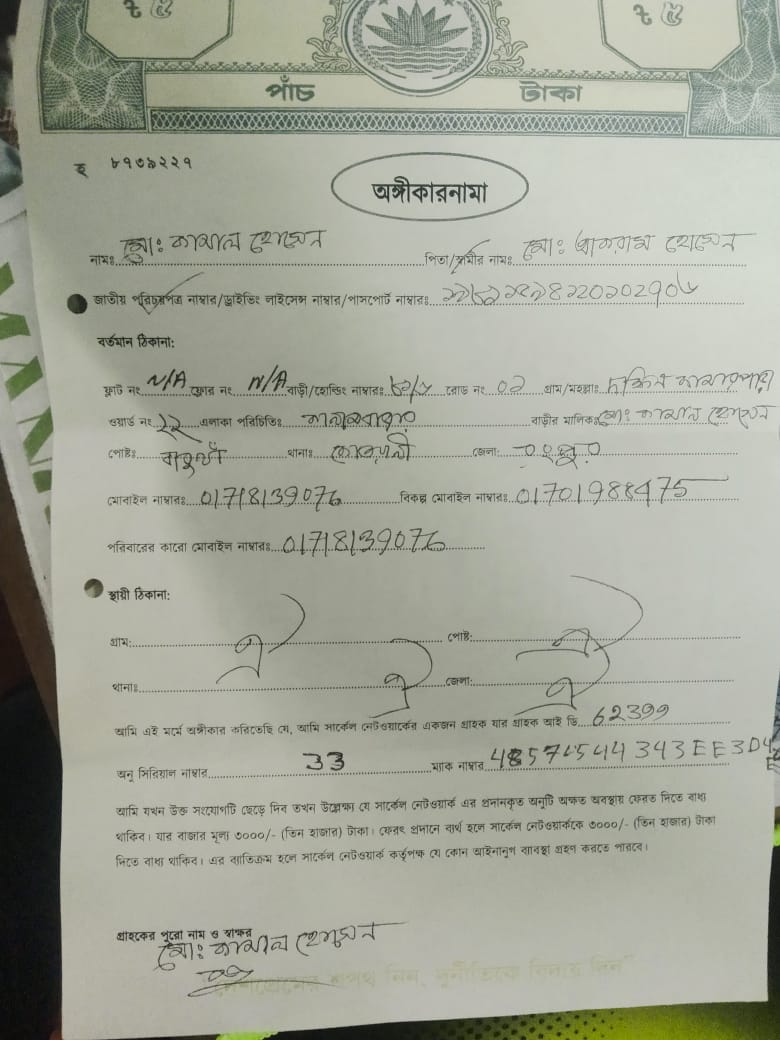 ৳ ৫ ৳ ৫
পাঁচ টাকা
হ ৮৭৩৯২২৭
অঙ্গীকারনামা
নামঃ মোঃ কামাল হোসেন পিতা/স্বামীর নামঃ মোঃ আকরাম হোসেন
জাতীয় পরিচয়পত্র নাম্বার/ড্রাইভিং লাইসেন্স নাম্বার/পাসপোর্ট নাম্বারঃ
বর্তমান ঠিকানা:
ফ্লাট নং N/A ফ্লোর নং N/A বাড়ী/হোল্ডিং নাম্বারঃ রোড নং ০২ গ্রাম/মহল্লাঃ দক্ষিন কামারপাড়া
ওয়ার্ড নং ২২ এলাকা পরিচিতিঃ বাড়ীর মালিকঃ মোঃ কামাল হোসেন
পোষ্টঃ থানাঃ কোতয়ালী জেলা: রংপুর
মোবাইল নাম্বারঃ 01718139076 বিকল্প মোবাইল নাম্বারঃ 01701988475
পরিবারের কারো মোবাইল নাম্বারঃ 01718139076
স্থায়ী ঠিকানা:
গ্রাম: ঐ পোষ্ট: ঐ
থানাঃ ঐ জেলা: ঐ
আমি এই মর্মে অঙ্গীকার করিতেছি যে, আমি সার্কেল নেটওয়ার্কের একজন গ্রাহক যার গ্রাহক আই ডি 62399
অনু সিরিয়াল নাম্বার 33 ম্যাক নাম্বার
আমি যখন উক্ত সংযোগটি ছেড়ে দিব তখন উল্লেক্ষ্য যে সার্কেল নেটওয়ার্ক এর প্রদানকৃত অনুটি অক্ষত অবস্থায় ফেরত দিতে বাধ্য
থাকিব। যার বাজার মূল্য ৩০০০/- (তিন হাজার) টাকা। ফেরৎ প্রদানে ব্যর্থ হলে সার্কেল নেটওয়ার্ককে ৩০০০/- (তিন হাজার) টাকা
দিতে বাধ্য থাকিব। এর ব্যতিক্রম হলে সার্কেল নেটওয়ার্ক কর্তৃপক্ষ যে কোন আইনানুগ ব্যবস্থা গ্রহণ করতে পারবে।
গ্রাহকের পুরো নাম ও স্বাক্ষর
মোঃ কামাল হোসেন
"দেশপ্রেমের শপথ নিন, দুর্নীতিকে বিদায় দিন"